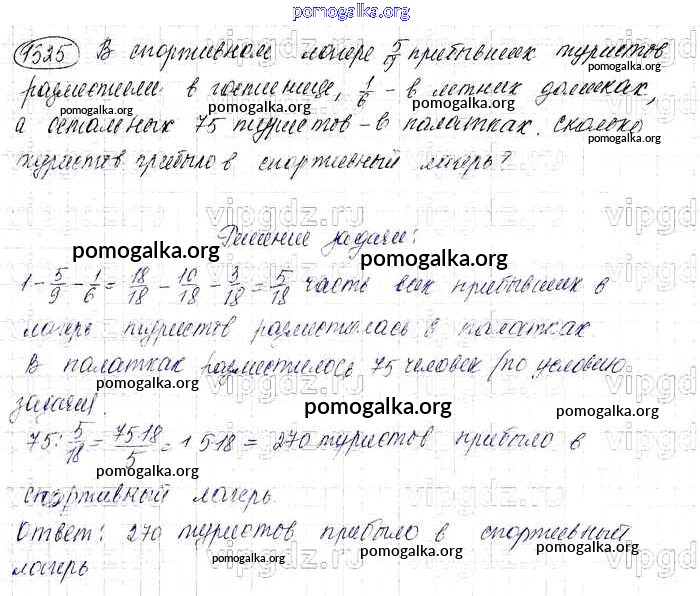 pomogalka.org
1525 В спортивном лагере 5/9 прибывших туристов
разместили в гостинице, 1/6 - в летних домиках,
pomogalka.org pomogalka.org pomogalka.org
а остальных 75 туристов - в палатках. Сколько
pomogalka.org
туристов прибыло в спортивный лагерь?
pomogalka.org pomogalka.org
vipgdz.ru vipgdz.ru vipgdz.ru
Решение задачи:
pomogalka.org pomogalka.org
1 - 5/9 - 1/6 = 18/18 - 10/18 - 3/18 = 5/18 часть всех прибывших в
лагерь туристов разместилась в палатках.
В палатках разместилось 75 человек (по условию
pomogalka.org pomogalka.org
задачи).
pomogalka.org pomogalka.org
75 : 5/18 = 75·18/5 = 15·18 = 270 туристов прибыло в
pomogalka.org
спортивный лагерь.
pomogalka.org
Ответ: 270 туристов прибыло в спортивный
pomogalka.org pomogalka.org
лагерь